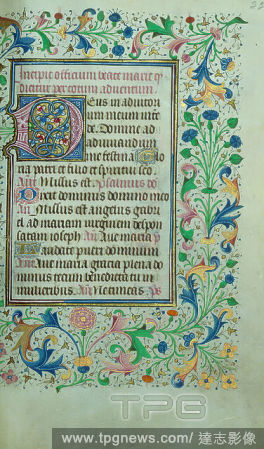 Incipit officium beate marie q̄
dicitur per totum aduentum.
Deus in adiutori
um meum inte
de. Domine ad
adiuuandum
me festina Glo
ria patri et filio et spiritui sco
Añ Missus est Psalmus dd
Dixit dominus domino meo
Añ Missus est angelus gabri
el ad mariam uirginem despon
satam ioseph Añ Aue maria p̄
Laudate pueri dominum
Añ Aue maria gracia plena do
minus tecum benedicta tu in
mulieribus Añ Ps
TPG
www.tpgnews.com/ 達志影像